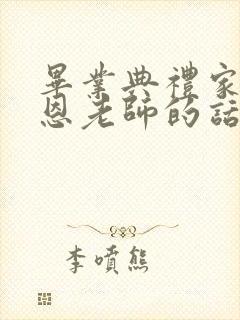 畢業典禮家
恩老師的話
李噴熊